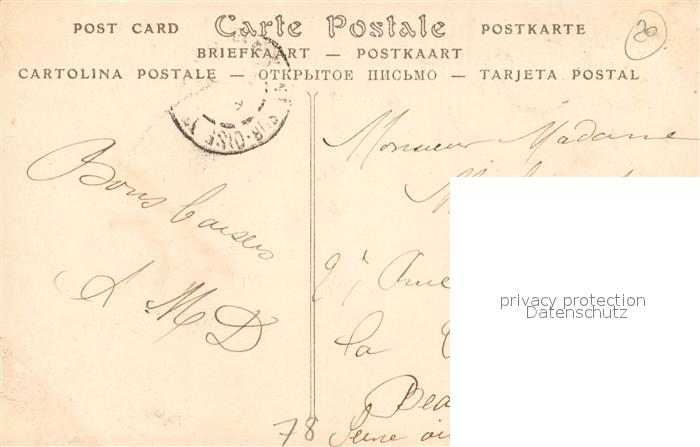 POST CARD Carte Postale POSTKARTE
BRIEFKAART — POSTKAART
CARTOLINA POSTALE — ОТКРЫТОЕ ПИСЬМО — TARJETA POSTAL
20
SUR-OISE
Bons baisers
A M D
Monsieur Madame
27 Rue
la
Bea
Seine
78
privacy protection
Datenschutz